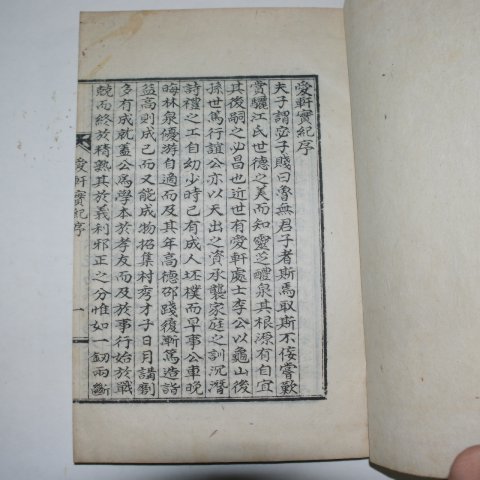 愛軒實紀序
夫子謂宓子賤曰魯無君子者斯焉取斯不侫嘗歎
賞驪江氏世德之美而知靈芝醴泉其根源有自宜
其後嗣之必昌也近世有愛軒處士李公以龜山後
孫世篤行誼公亦以天出之資承襲家庭之訓沉潛
詩禮之工自幼少時已有成人坯樸而早事公車晩
晦林泉優游自適而及其年高德邵踐復漸篤造詣
益高則成已而又能成物招集村秀才子日月講劘
多有成就盖公爲學本於孝友而及於事行始於戰
兢而終於精熟其於義利邪正之分惟如一釰兩斷
愛軒實紀序
一